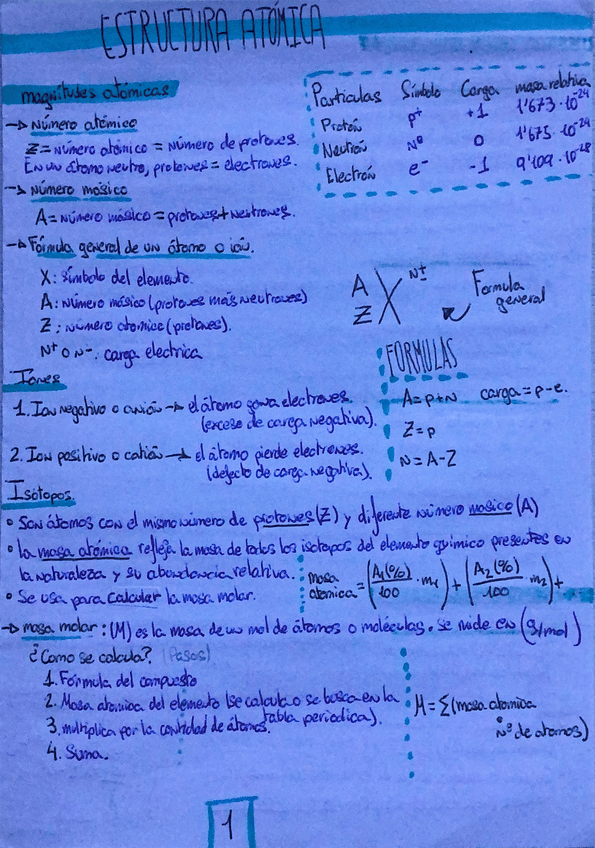 ESTRUCTURA ATÓMICA
magnitudes atómicas
→ Número atómico
Z = Número atómico = Número de protones.
En un átomo neutro, protones = electrones.
→ Número másico
A = Número másico = protones + neutrones.
→ Fórmula general de un átomo o ión.
X: símbolo del elemento.
A: Número másico (protones más neutrones)
Z: número atomico (protones).
N+ o N-: carga electrica
Partículas Símbolo Carga masa relativa
Protón p+ +1 1'673·10-24
Neutrón Nº 0 1'675·10-24
Electrón e- -1 9'109·10-28
A
Z X N±
Formula
general
FORMULAS
A = p+N carga = p-e.
Z = p
N = A-Z
Iones
1. Ion negativo o anión → el átomo gana electrones.
(exceso de carga negativa).
2. Ion positivo o catión → el átomo pierde electrones.
(defecto de carga negativa).
Isótopos
• Son átomos con el mismo número de protones (Z) y diferente número masico (A)
• la masa atómica refleja la masa de todos los isotopos del elemento quimico presentes en
la naturaleza y su abundancia relativa.
• Se usa para calcular la masa molar.
masa
atomica = (A1(%)/100 · m1) + (A2(%)/100 · m2) +
→ masa molar: (M) es la masa de un mol de átomos o moléculas. Se mide en (g/mol)
¿Como se calcula? (Pasos)
1. Fórmula del compuesto
2. Masa atomica del elemento (se calcula o se busca en la
tabla periodica).
3. multiplica por la cantidad de átomos.
4. Suma.
M = Σ (masa atomica
· Nº de atomos)
1